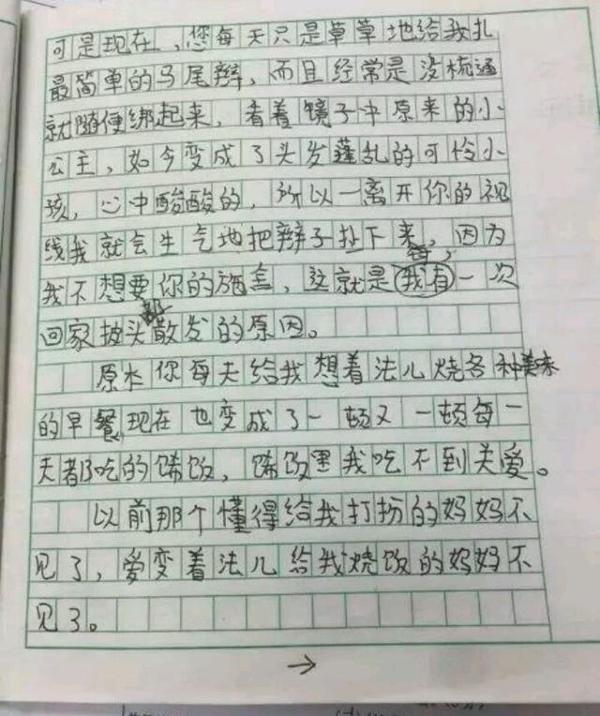 可是现在,您每天只是草草地给我扎
最简单的马尾辫,而且经常是没梳通
就随便绑起来,看着镜子中原来的小
公主,如今变成了头发蓬乱的可怜小
孩,心中酸酸的,所以一离开你的视
线我就会生气地把辫子扯下来,因为
我不想要你的施舍,这就是我每有一次
回家披头散发的原因。
原本你每天给我想着法儿烧各种美味
的早餐现在也变成了一顿又一顿每一
天都吃的馊饭,馊饭里我吃不到关爱。
以前那个懂得给我打扮的妈妈不
见了,爱变着法儿给我烧饭的妈妈不
见了。
→